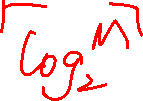 ⌈log₂ᴹ⌉